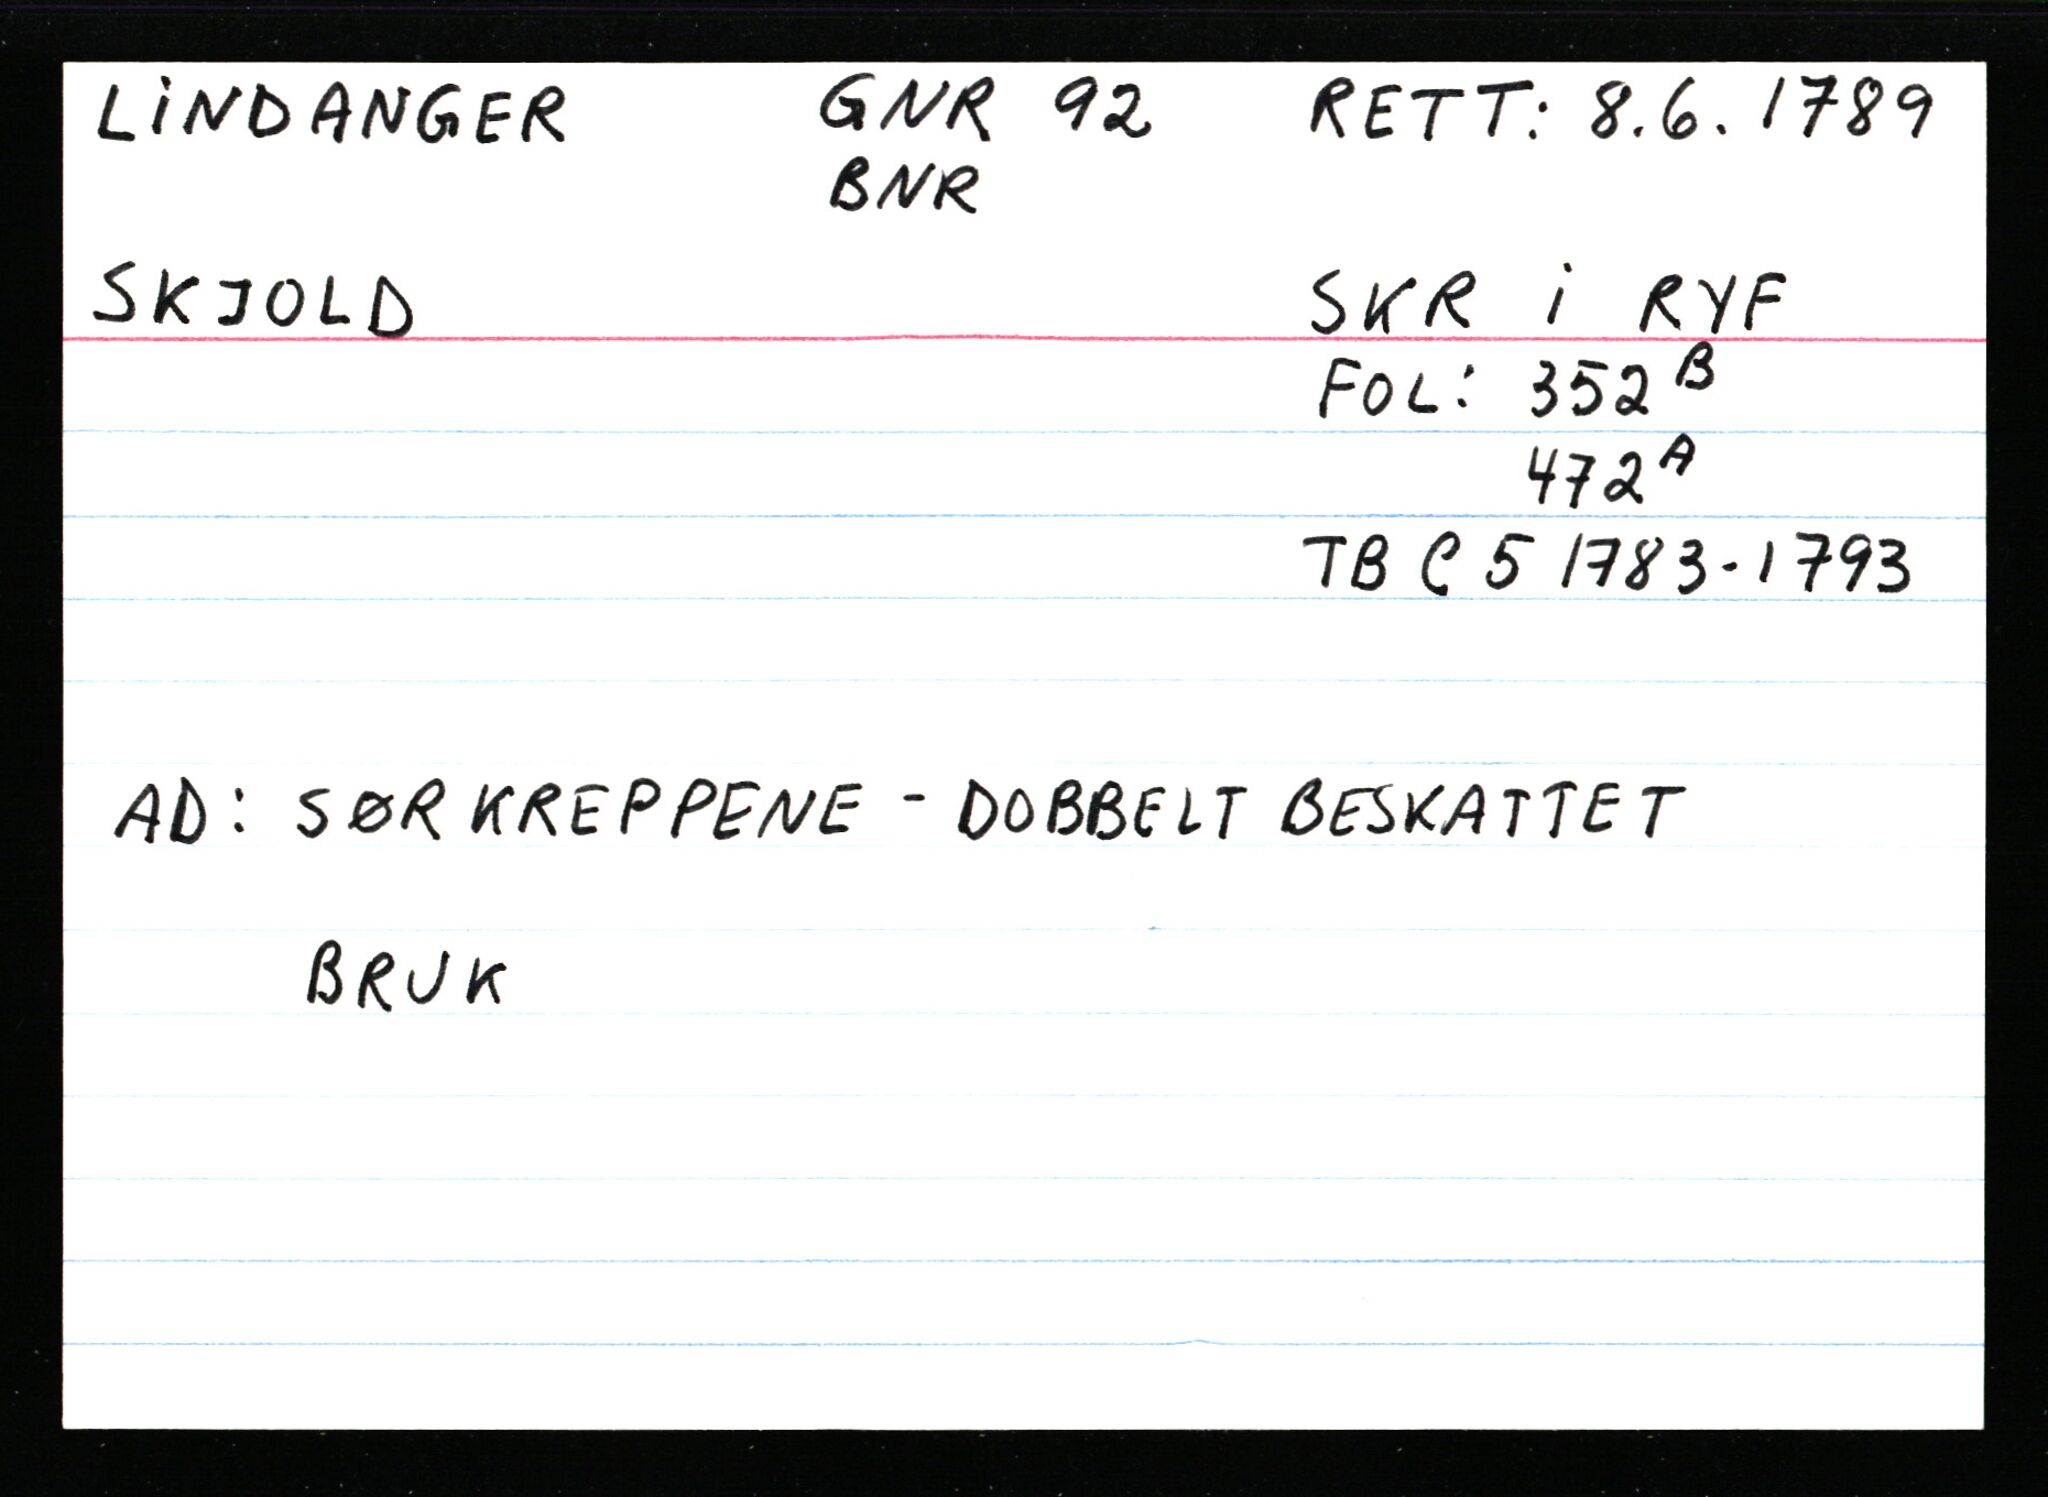 LiNDANGER GNR 92 RETT: 8.6.1789
BNR
SKJOLD SKR i RYF
FOL: 352 B
472 A
TB C 5 1783-1793
AD: SØR KREPPENE - DOBBELT BESKATTET
BRUK